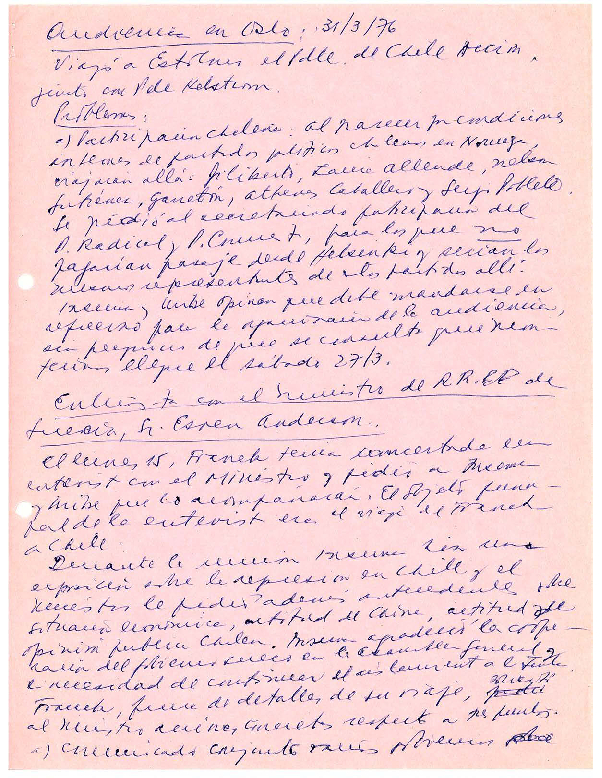 Audiencia en Oslo: 31/3/76
Viajó a Estolmo el Pdte. de Chile Acción,
junto con Pde Kelstrom.
Problemas:
a) Participación chilena: al parecer por condiciones
internas de partidos políticos chilenos en Noruega,
viajarán allá: Giliberto, Laura Allende, Nelson
Gutiérrez, Garretón, Athenas Caballero y Sergio Poblete.
Se pidió al secretariado participación del
P. Radical y P. Comunista, para los que no
pagarían pasaje desde Helsinki y serían los
mismos representantes de los partidos allí.
Insunza y Uribe opinan que debe mandarse un
refuerzo para la organización de la audiencia,
sin perjuicio de que se consulta que
llegue el sábado 27/3.
Entrevista con el Ministro de RR.EE de
Suecia, Sr. Esven Anderson.
El lunes 15, Franck tenía concertada una
entrevista con el Ministro y pidió a Insunza
y Uribe que lo acompañaran. El objeto princi-
pal de la entrevista era el viaje de Franck
a Chile.
Durante la reunión Insunza hizo una
exposición sobre la represión en Chile y el
Ministro le pidió además antecedentes sobre
situación económica, actitud de China, actitud de
opinión pública chilena. Insunza agradeció la coope-
ración del gobierno sueco en la Asamblea General y
la necesidad de continuar el aislamiento a la Junta.
Franck, junto de detalles de su viaje,
al Ministro acciones concretas respecto a tres puntos.
a) Comunicado conjunto varios gobiernos